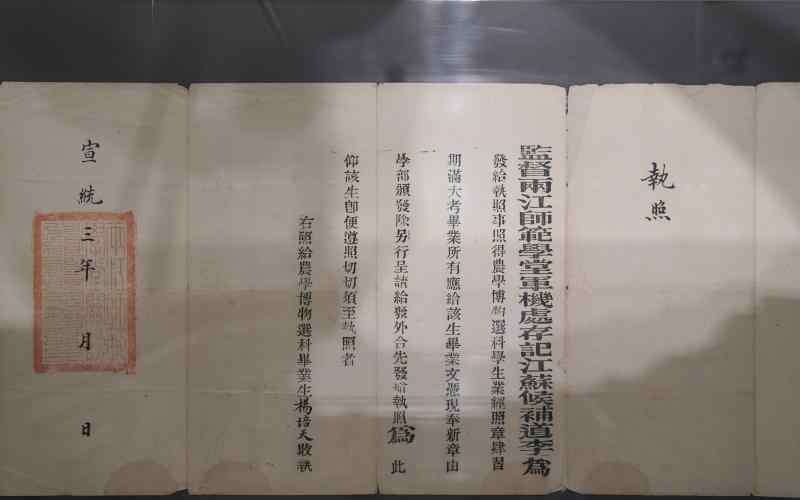 執照
監督兩江師範學堂軍機處存記江蘇候補道李 為
發給執照事照得農學博物選科學生業經照章肄習
期滿大考畢業所有應給該生畢業文憑現奉新章由
學部頒發除另行呈請給發外合先發給執照為此
仰該生即便遵照切切須至執照者
右照給農學博物選科畢業生楊培天收執
宣統三年 月 日